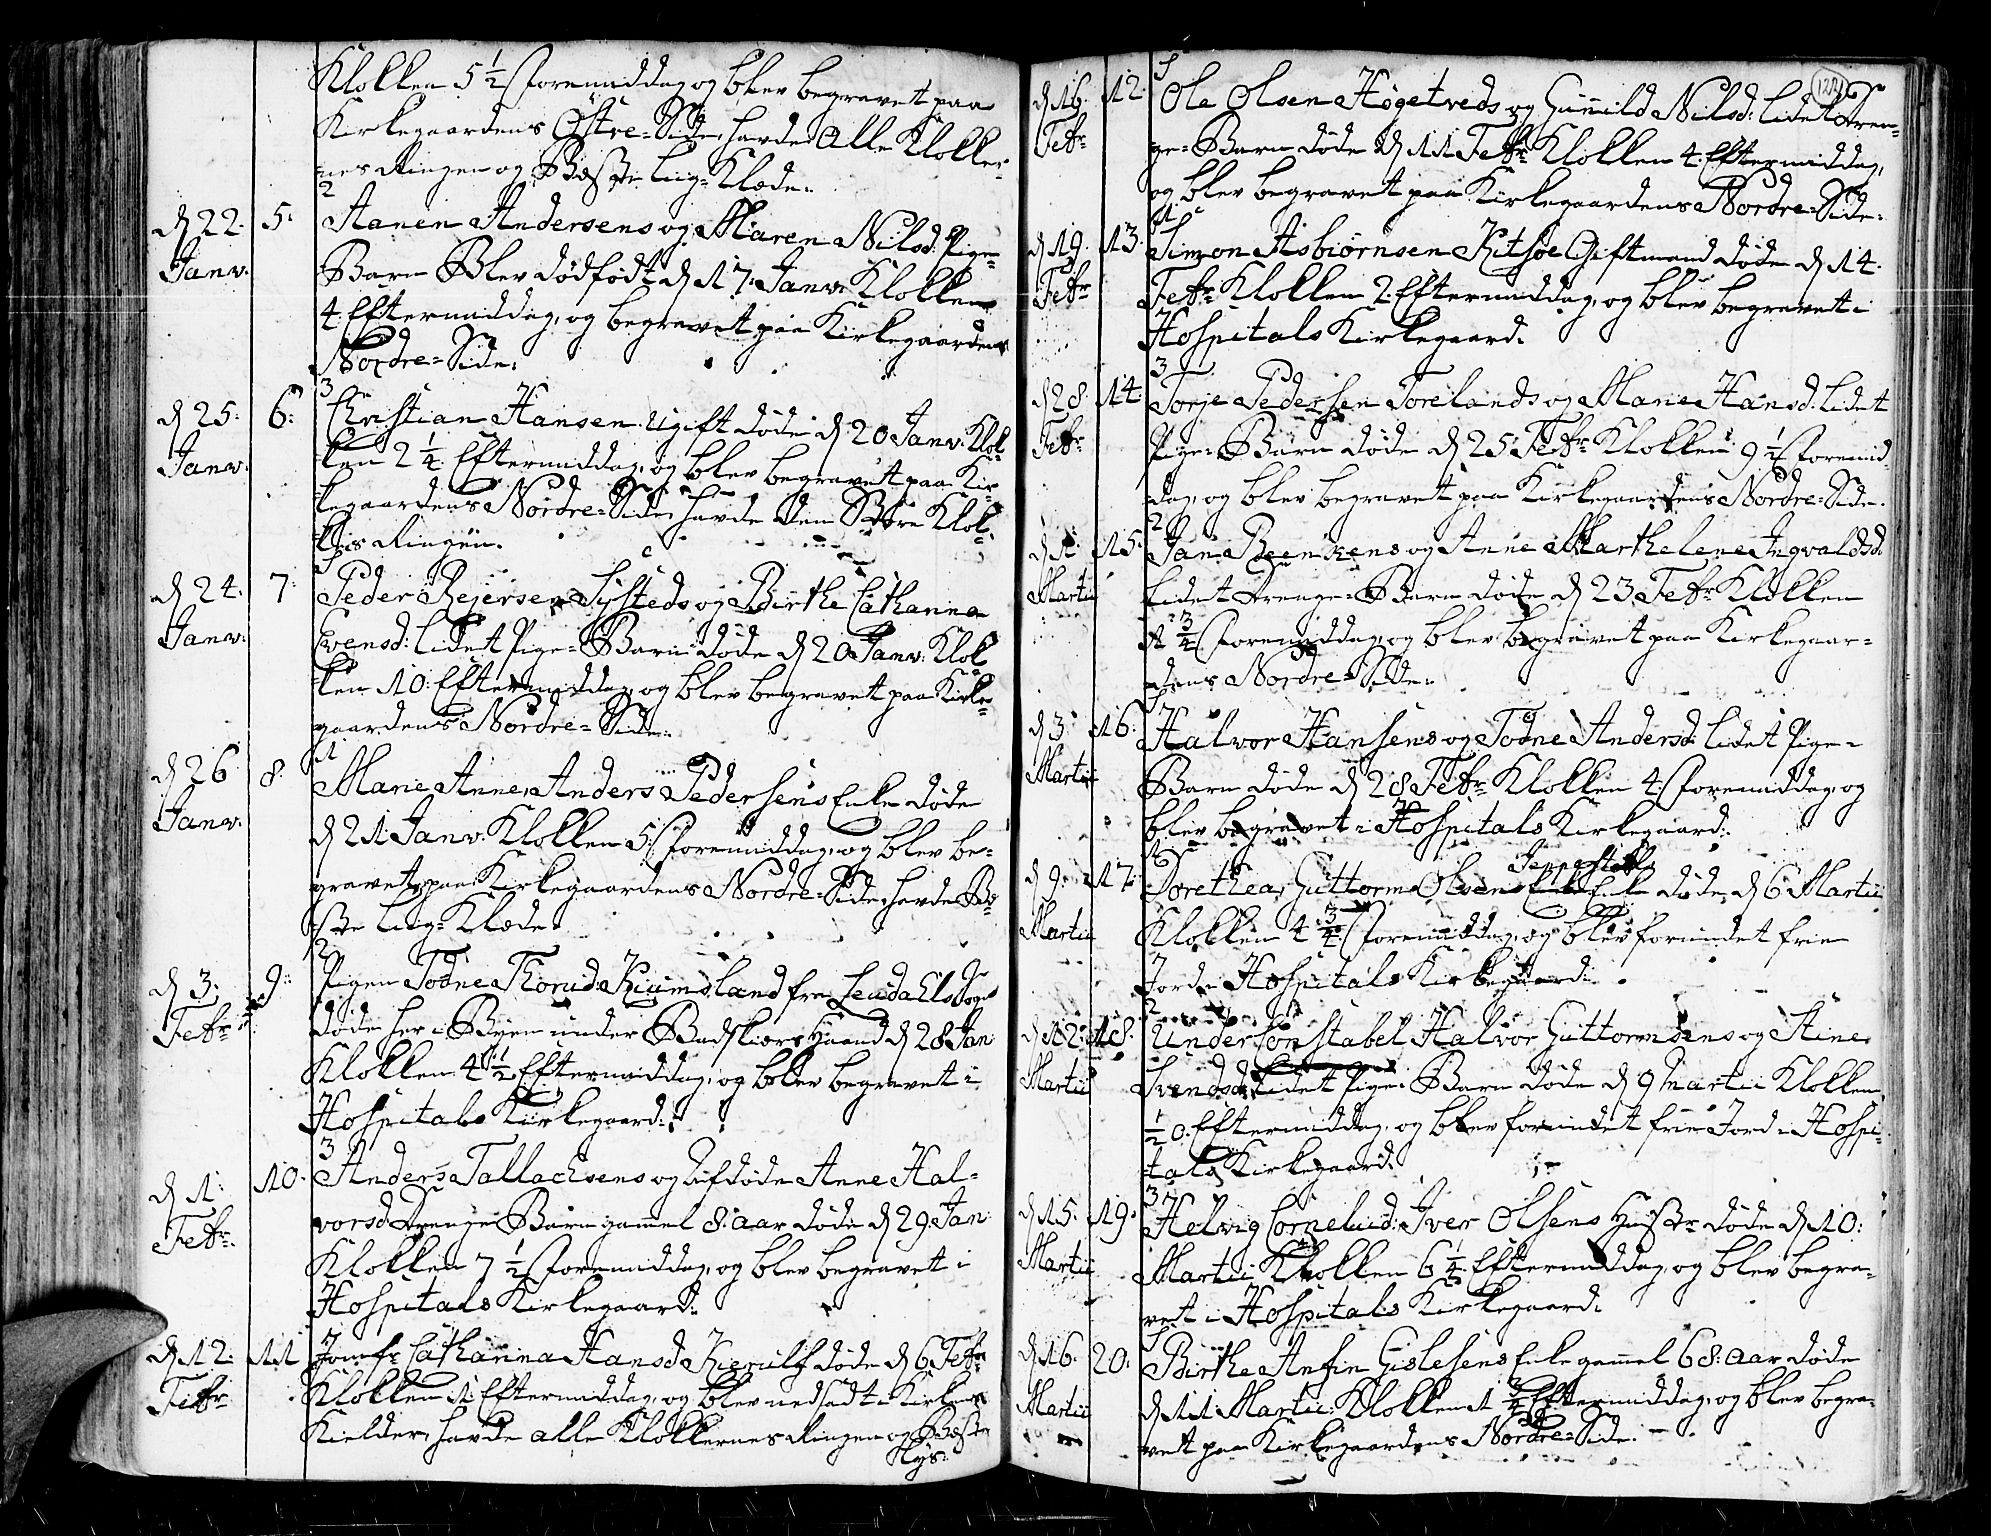 Klokken 5 1/2 Formiddag, og blev begravet paa
Kirkegaardens Østre-Side, havde Alle Klokker-
nes Ringen og Beste Liig-Klæde.
2
d 22. Janv. 5. Aanen Andersens og Maren Nilsd. Pige-
Barn Blev dødfødt d 17. Janv. Klokken
4. Eftermiddag, og begravet paa Kirkegaardens
Nordre-Side.
3
d 25. Janv. 6. Christian Hansen Ugift døde d 20 Janv. Klok-
ken 2 1/4 Eftermiddag, og blev begravet paa Kir-
kegaardens Nordre-Side, havde den Store Klok-
kes Ringen.
d 24. Janv. 7. Peder Rejersen Systeds og Birthe Cathanna
Svensd. lidet Pige-Barn døde d 20 Janv. Klok
ken 10. Eftermiddag, og blev begravet paa Kirke-
gaardens Nordre-Side.
1
d 26 Janv. 8. Marie Anne, Anders Pedersens Enke døde
d 21. Janv. Klokken 5. Formiddag, og blev be-
gravet paa Kirkegaardens Nordre-Side, havde Be-
ste Liig-Klæde.
2
d 3. Febr. 9. Pigen Todne Thorud. fra Sogn
døde her i Byen under Badskiærs Haand d 28 Jan.
Klokken 4 1/2 Eftermiddag, og blev begravet i
Hospitals Kirkegaard.
3
d 1. Febr. 10. Anders Tallachsens og Afdøde Anne Hal-
vorsd. Drenge Barn gammel 8. aar døde d 29. Jan.
Klokken 7 1/2 Formiddag, og blev begravet i
Hospitals Kirkegaard.
d 12. Febr 11 Jomfr. Cathanna Hansd. Kierulf døde d 6. Febr
Klokken 1. Eftermiddag, og blev nedsadt i Kirkens
Kielder, havde alle Klokkernes Ringen og Beste
122
d 16. Febr 12. Ole Olsen Høgetveds og Gunild Nilsd. lidet Dren-
ge-Barn døde d 11 Febr. Klokken 4. Eftermiddag,
og blev begravet paa Kirkegaardens Nordre-Side.
d 19. Febr 13. Simon Asbiørnsen Kitsøe Giftmand døde d 14.
Febr. Klokken 2. Eftermiddag, og blev begravet i
Hospitals Kirkegaard.
3
d 28. Febr. 14. Torje Pedersen Torelands og Marie Hansd. lidet
Pige-Barn døde d 25. Febr. Klokken 9 1/2 Formid-
dag, og blev begravet paa Kirkegaardens Nordre-Side.
2
d 1. Martii 15. Jan Beenkens og Anne Marthe lene Ingvaldsd.
lidet Drenge-Barn døde d 23. Febr. Klokken
1 3/4 Formiddag, og blev begravet paa Kirkegaar-
dens Nordre-Side.
d 3. Martii 16. Halvor Hansens og Todne Andersd. lidet Pige-
Barn døde d 28 Febr. Klokken 4. Formiddag, og
blev begravet i Hospitals Kirkegaard.
1
d 9. Martii 17. Dorethea, Guttorm Olsens Enke døde d 6 Martii
Klokken 4 3/4 Formiddag, og blev forundet frie
Jord i Hospitals Kirkegaard.
2
d 12. Martii 18. Under Constabel Halvor Guttormsens og Stine
Svendsd. lidet Pige-Barn døde d 9 Martii Klokken
1/2 0. Eftermiddag, og blev forundet frie Jord i Hospi-
tals Kirkegaard.
3
d 15. Martii 19. Helvig Cornelud. Iver Olsens Hustr. døde d 10.
Martii Klokken 6 1/4 Eftermiddag, og blev begra-
vet i Hospitals Kirkegaard.
d 16. Martii 20. Birthe Anfin Gislesens Enke gammel 68. aar døde
d 11 Martii Klokken 1 3/4 Eftermiddag, og blev begra-
vet paa Kirkegaardens Nordre-Side.